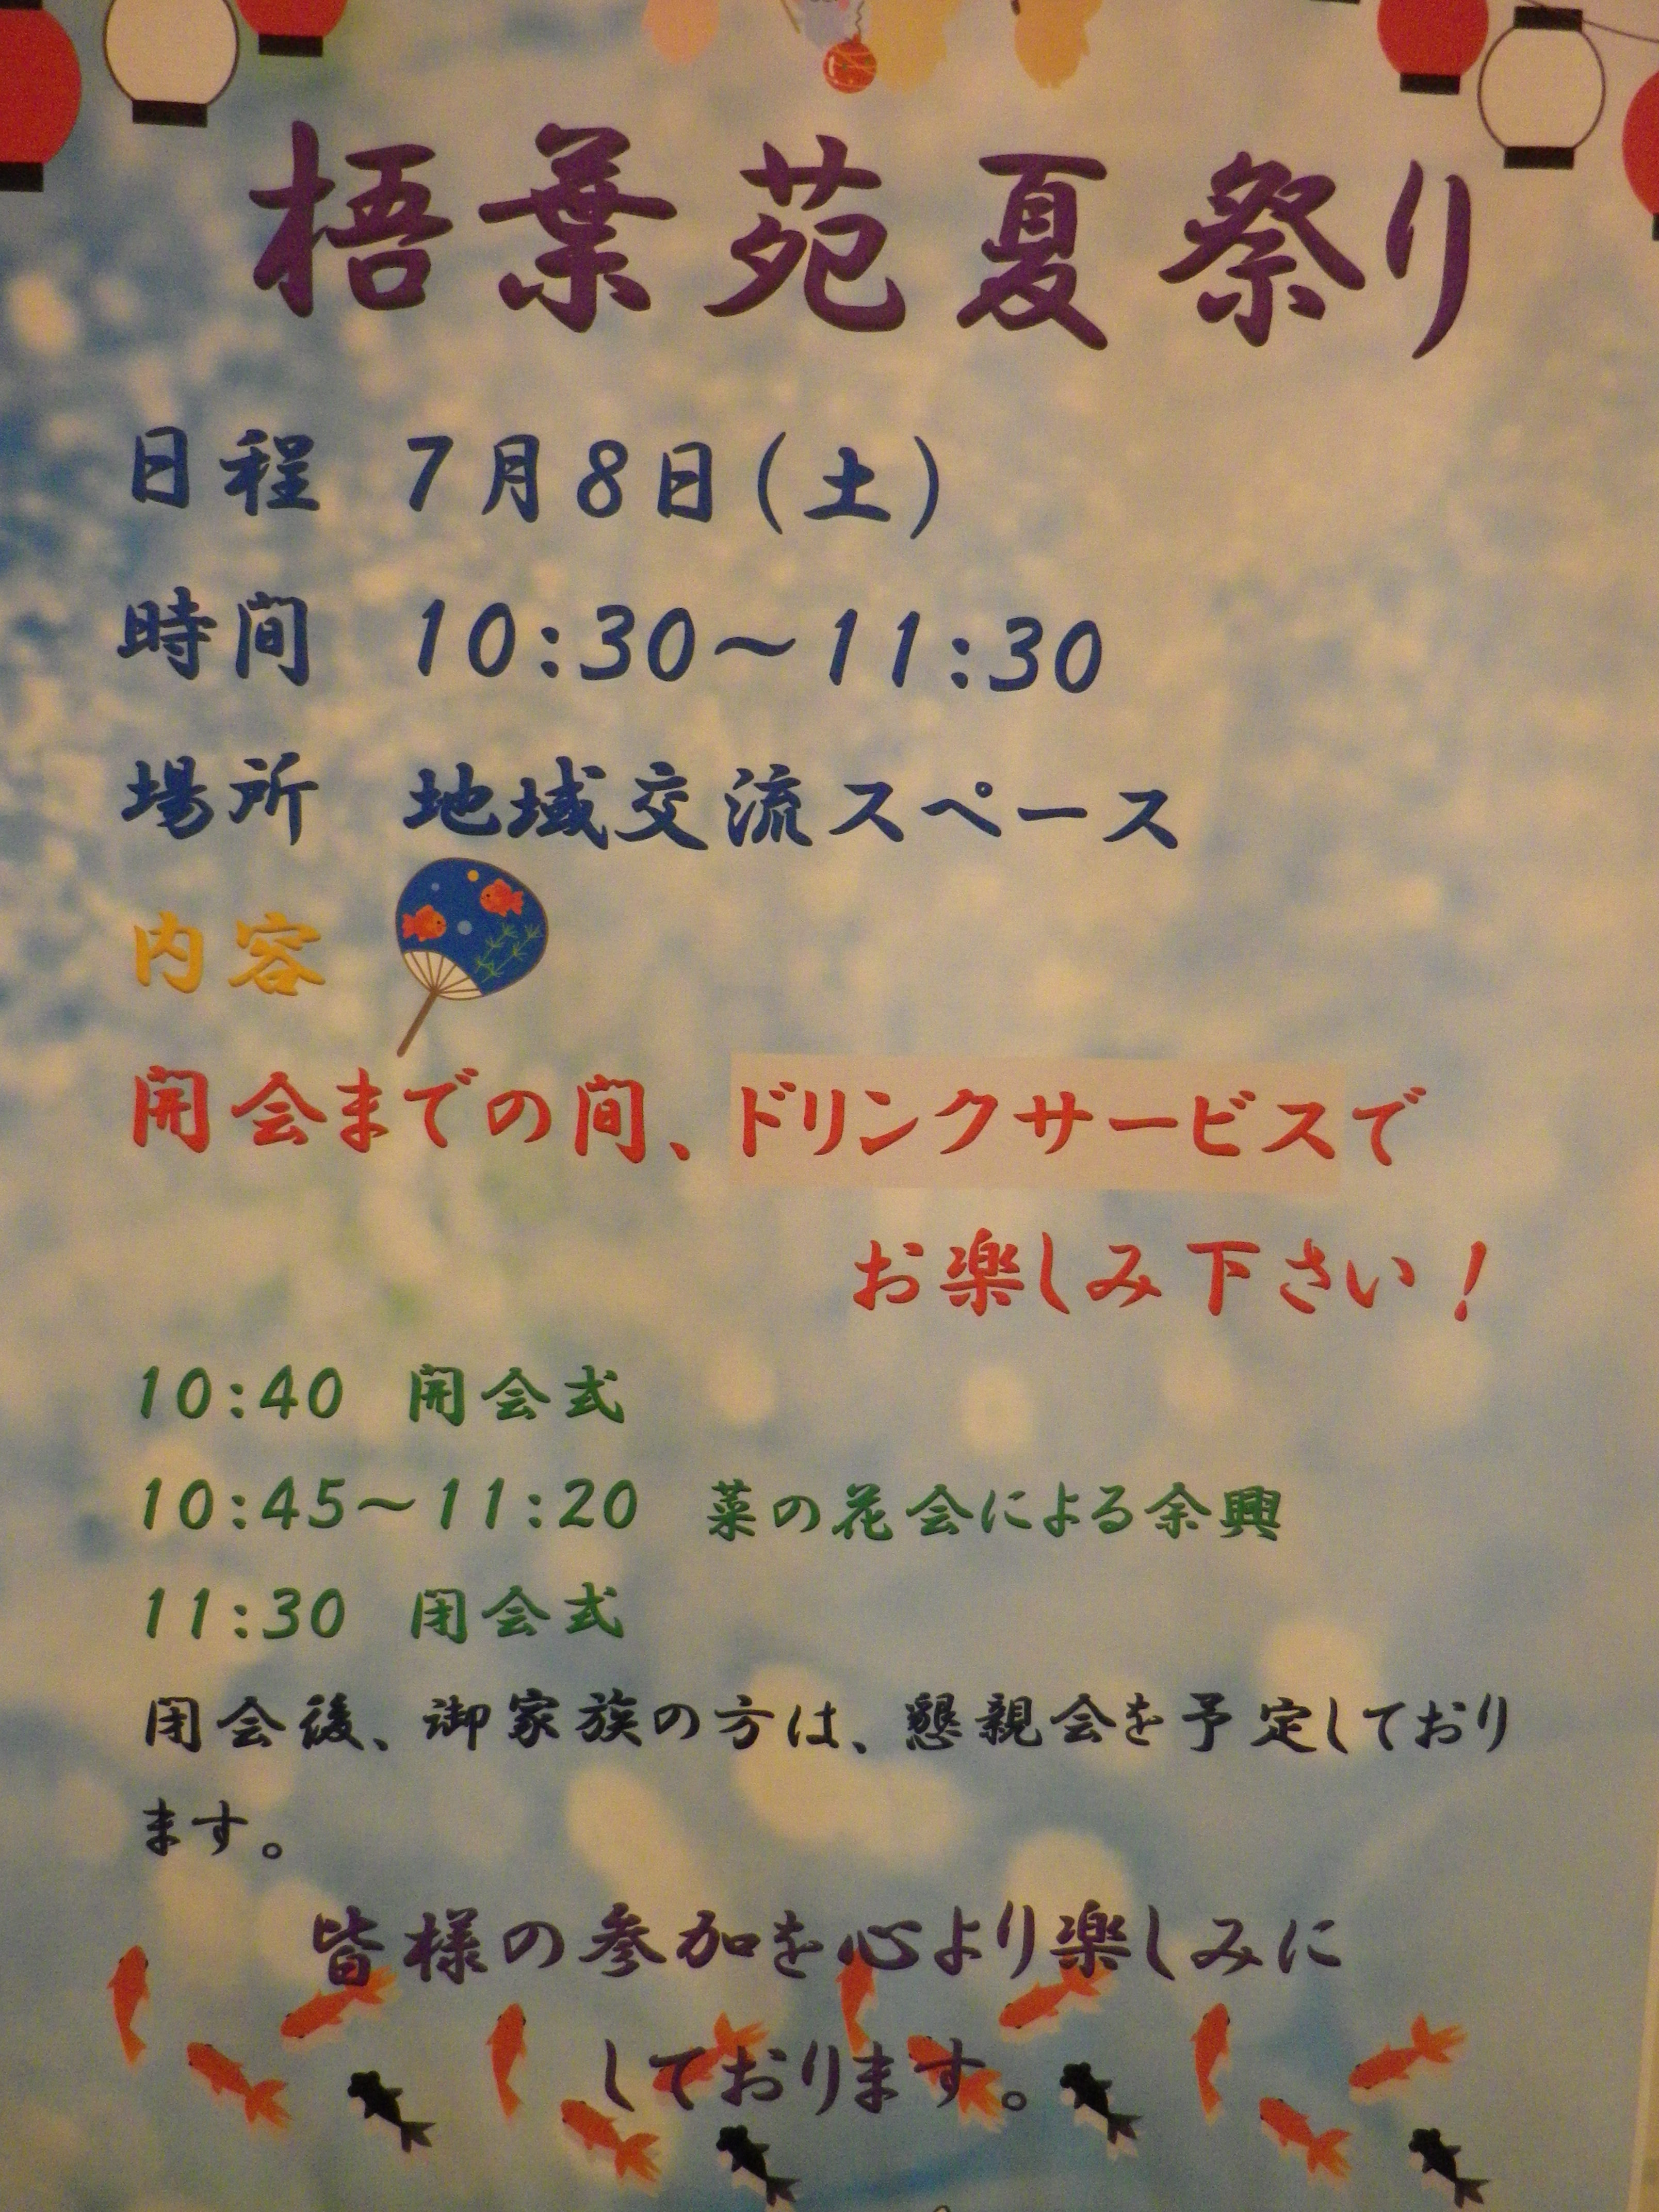 梧葉苑夏祭り
日程 7月8日(土)
時間 10:30～11:30
場所 地域交流スペース
内容
開会までの間、ドリンクサービスで
お楽しみ下さい！
10:40 開会式
10:45～11:20 菜の花会による余興
11:30 閉会式
閉会後、御家族の方は、懇親会を予定しており
ます。
皆様の参加を心より楽しみに
しております。